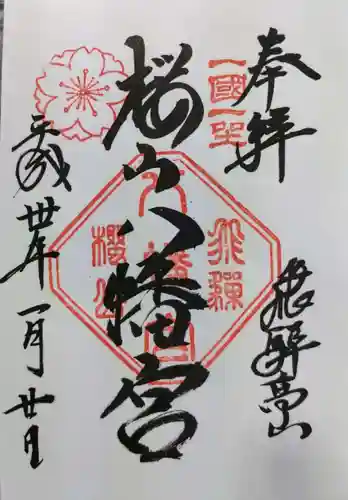 奉拝
一國一社
飛騨高山
桜山八幡宮
飛騨
八幡宮
櫻山
平成卅年一月廿日